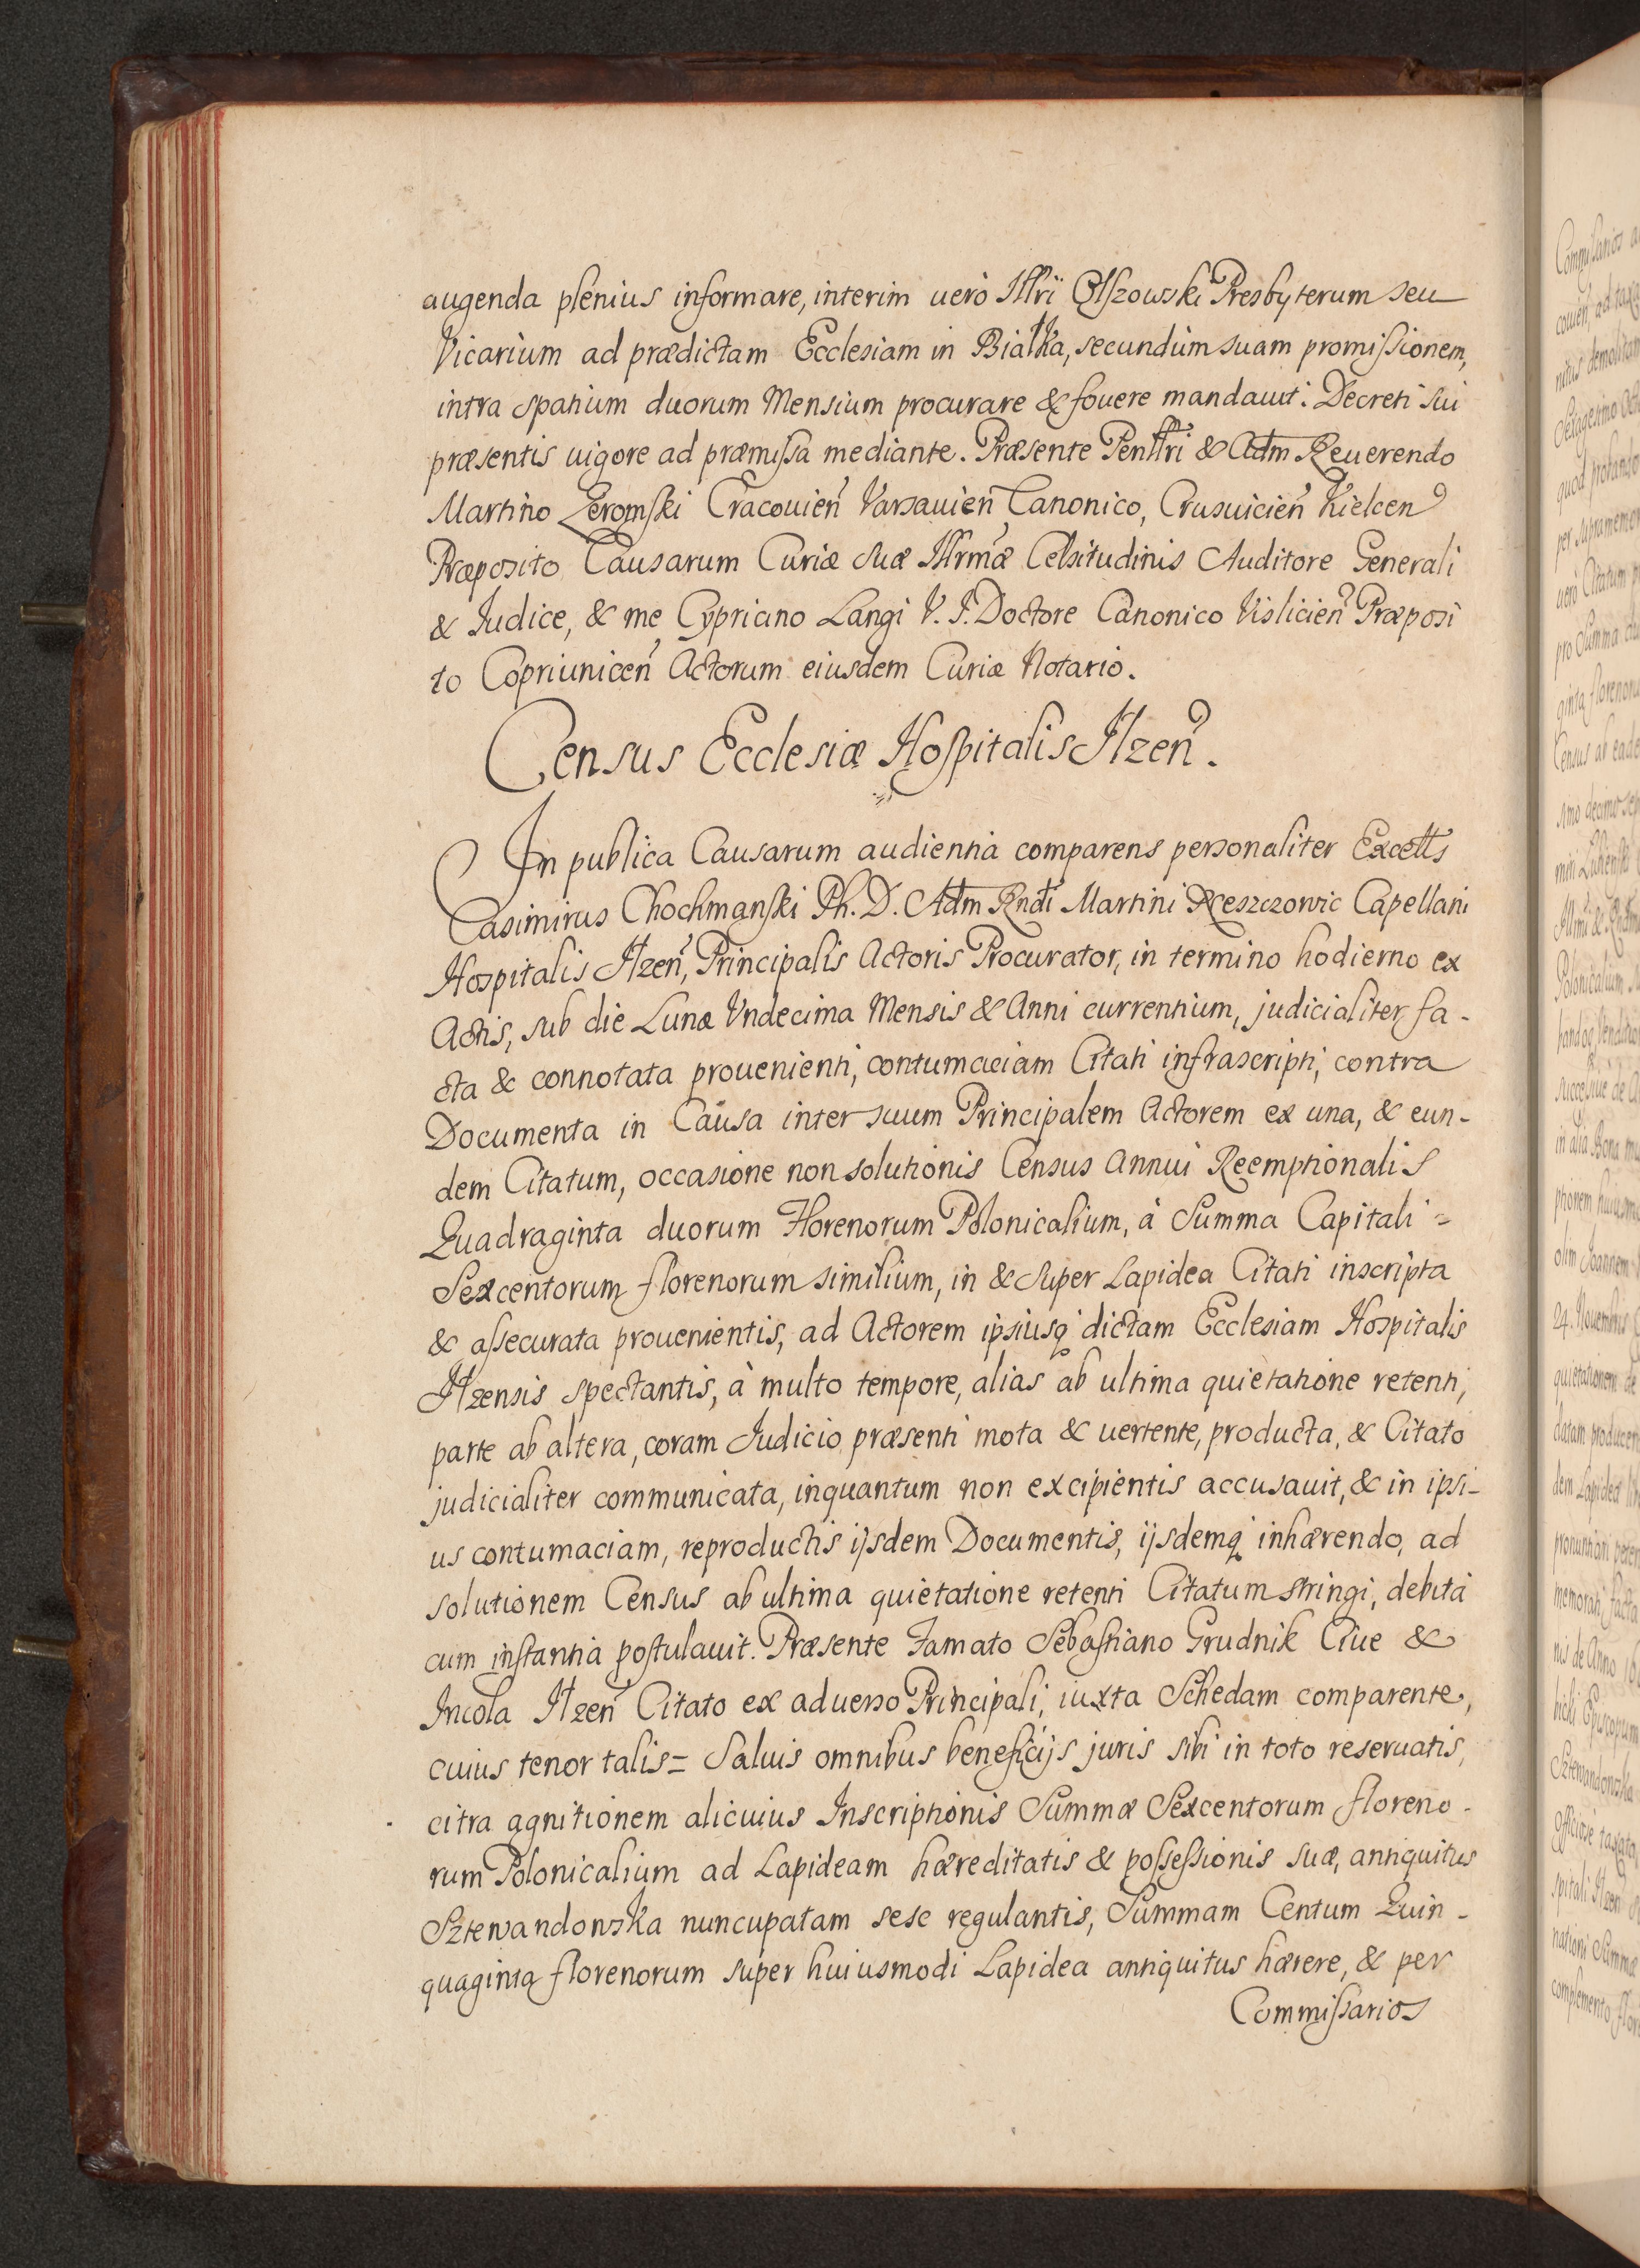 augenda plenius informare, interim uerò Illri Olszowski Presbyterum seu
Vicarium ad prædictam Ecclesiam in Białka, secundùm suam promissionem,
intra spatium duorum Mensium procurare & fouere mandauit: Decreti sui
præsentis uigore ad præmissa mediante. Præsente Penllri & Adm Reuerendo
Martino Żeromski Cracouien̄ Varsauien̄ Canonico, Crusuicien̄ Kielcen̄
Præposito Causarum Curiæ suæ Illrmæ Celsitudinis Auditore Generali
& Judice, & me Cypriano Langi V. J. Doctore Canonico Vislicien̄ Præposi
to Copriunicen̄ Actorum eiusdem Curiæ Notario.
Census Ecclesiæ Hospitalis Ilzen̄.
In publica Causarum audientia comparens personaliter Excells
Casimirus Chochmanski Ph. D. Adm Rndi Martini Reszczowic Capellani
Hospitalis Ilzen̄, Principalis Actoris Procurator, in termino hodierno ex
Actis, sub die Lunæ Vndecima Mensis & Anni currentium, judicialiter fa-
cta & connotata prouenienti, contumaciam Citati infrascripti, contra
Documenta in Causa inter suum Principalem Actorem ex una, & eun-
dem Citatum, occasione non solutionis Census Annui Reemptionalis
Quadraginta duorum Florenorum Polonicalium, à Summa Capitali =
Sexcentorum florenorum similium, in & super Lapidea Citati inscripta
& assecurata prouenientis, ad Actorem ipsiusq dictam Ecclesiam Hospitalis
Ilzensis spectantis, à multo tempore, alias ab ultima quietatione retenti,
parte ab altera, coram Judicio præsenti mota & uertente, producta, & Citato
judicialiter communicata, inquantum non excipientis accusauit, & in ipsi-
us contumaciam, reproductis ijsdem Documentis, ijsdemq inhærendo, ad
solutionem Census ab ultima quietatione retenti Citatum stringi, debita
cum instantia postulauit. Præsente Famato Sebastiano Grudnik Ciue &
Incola Ilzen̄ Citato ex aduerso Principali, iuxta Schedam comparente,
cuius tenor talis = Saluis omnibus beneficijs juris sibi in toto reseruatis,
citra agnitionem alicuius Inscriptionis Summæ Sexcentorum floreno-
rum Polonicalium ad Lapideam hæreditatis & possessionis suæ, antiquitus
Sztewandowska nuncupatam sese regulantis, Summam Centum Quin-
quaginta florenorum super huiusmodi Lapidea antiquitus hærere, & per
Commissarios